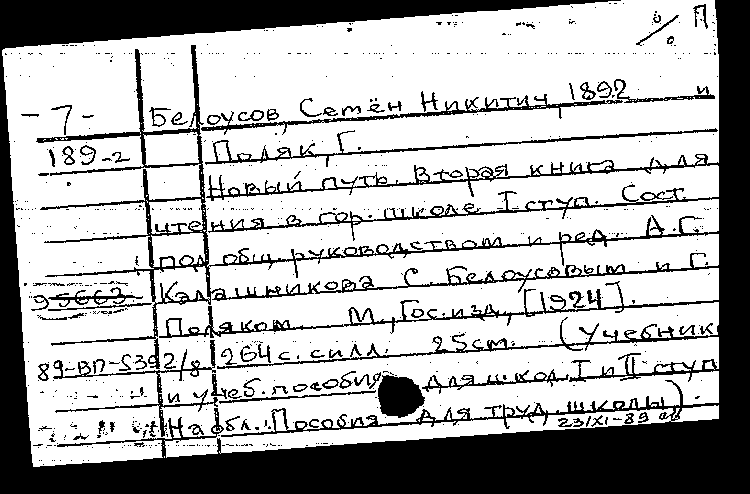 % П
-7- Белоусов, Семён Никитич, 1892 и
189-2 Поляк, Г.
Новый путь. Вторая книга для
чтения в гор. школе I ступ. Сост.
под общ. руководством и ред. А.Г.
95663 Калашникова С. Белоусовым и Г.
Поляком. М., Гос. изд., [1924].
89-ВП-5392/8 264 с. силл. 25 см. (Учебники
и учеб. пособия для школ. I и II ступ
На обл.: Пособия для труд. школы).
23/XI-89